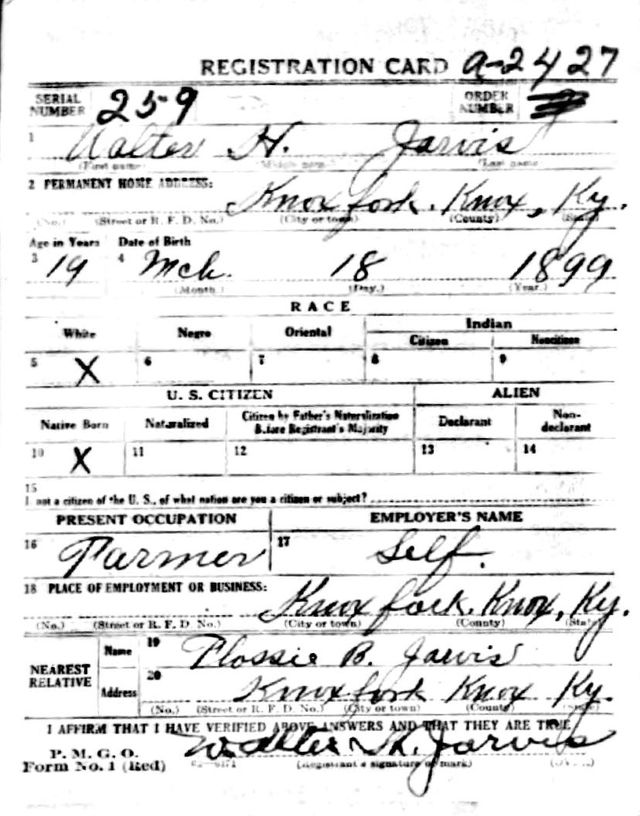 REGISTRATION CARD a-2427
SERIAL NUMBER 259 ORDER NUMBER
1 Walter H. Jarvis
(First name) (Middle name) (Last name)
2 PERMANENT HOME ADDRESS: Knox fork. Knox, Ky.
(No.) (Street or R. F. D. No.) (City or town) (County) (State)
Age in Years Date of Birth
3 19 4 Mch. 18 1899
(Month.) (Day.) (Year.)
RACE
White Negro Oriental Indian
Citizen Noncitizen
5 X 6 7 8 9
U. S. CITIZEN ALIEN
Native Born Naturalized Citizen by Father's Naturalization Before Registrant's Majority Declarant Non-declarant
10 X 11 12 13 14
15
I not a citizen of the U. S., of what nation are you a citizen or subject?
PRESENT OCCUPATION EMPLOYER'S NAME
16 Farmer 17 Self.
18 PLACE OF EMPLOYMENT OR BUSINESS: Knox fork. Knox, Ky.
(No.) (Street or R. F. D. No.) (City or town) (County) (State)
NEAREST RELATIVE Name 19 Flossie B. Jarvis
Address 20 Knox fork Knox Ky.
(No.) (Street or R. F. D. No.) (City or town) (County) (State)
I AFFIRM THAT I HAVE VERIFIED ABOVE ANSWERS AND THAT THEY ARE TRUE
P. M. G. O.
Form No. 1 (Red) Walter H. Jarvis
(Registrant's signature or mark)